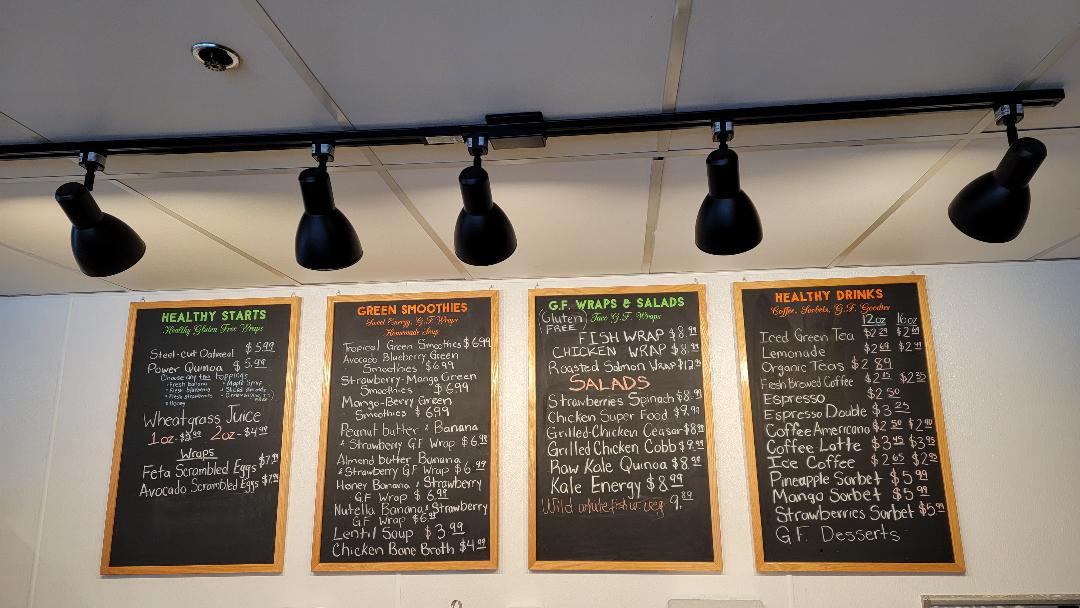 HEALTHY STARTS
Healthy Gluten Free Wraps
Steel-cut Oatmeal $5.99
Power Quinoa $5.99
Choose any two toppings
• Fresh banana • Maple Syrup
• Fresh blueberries • Sliced Almonds
• Fresh strawberries
• Honey
Wheatgrass Juice
1oz - $2.99 2oz - $4.99
Wraps
Feta Scrambled Eggs $7.99
Avocado Scrambled Eggs $7.99
GREEN SMOOTHIES
Sweet Energy, G.F. Wraps
Homemade Soup
Tropical Green Smoothies $6.99
Avocado Blueberry Green
Smoothies $6.99
Strawberry-Mango Green
Smoothies $6.99
Mango-Berry Green
Smoothies $6.99
Peanut butter & Banana
& Strawberry GF Wrap $6.99
Almond butter Banana
& Strawberry G.F Wraps $6.99
Honey Banana & Strawberry
G.F Wrap $6.99
Nutella Banana & Strawberry
G.F. Wrap $6.99
Lentil Soup $3.99
Chicken Bone Broth $4.99
G.F. WRAPS & SALADS
Taco G.F. Wraps
(Gluten
FREE)
FISH WRAP $8.99
CHICKEN WRAP $8.99
Roasted Salmon Wrap $12.99
SALADS
Strawberries Spinach $8.99
Chicken Super Food $9.99
Grilled-Chicken Ceasar $8.99
Grilled Chicken Cobb $9.99
Raw Kale Quinoa $8.99
Kale Energy $8.99
Wild whitefish w. veg 9.89
HEALTHY DRINKS
Coffee, Sorbets, G.F. Goodies
12oz 16oz
Iced Green Tea $2.29 $2.69
Lemonade $2.69
Organic Teas $2.89
Fresh Brewed Coffee $2.15 $2.35
Espresso $2.50
Espresso Double $3.25
Coffee Americano $2.50
Coffee Latte $3.45 $3.95
Ice Coffee $2.65 $2.95
Pineapple Sorbet $5.99
Mango Sorbet $5.99
Strawberries Sorbet $5.99
G.F. Desserts